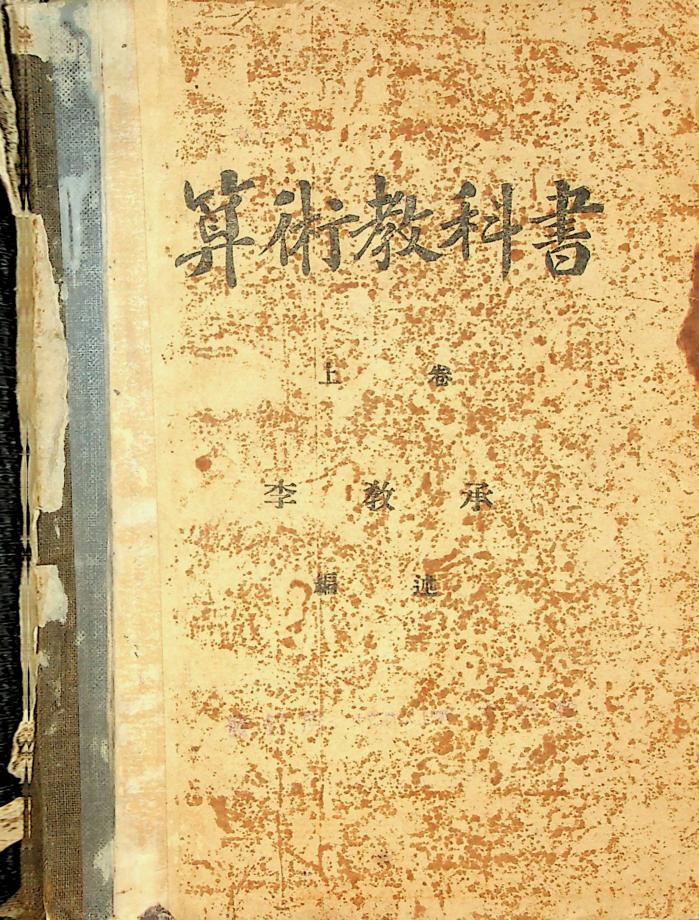 算術教科書
上卷
李教承
編述